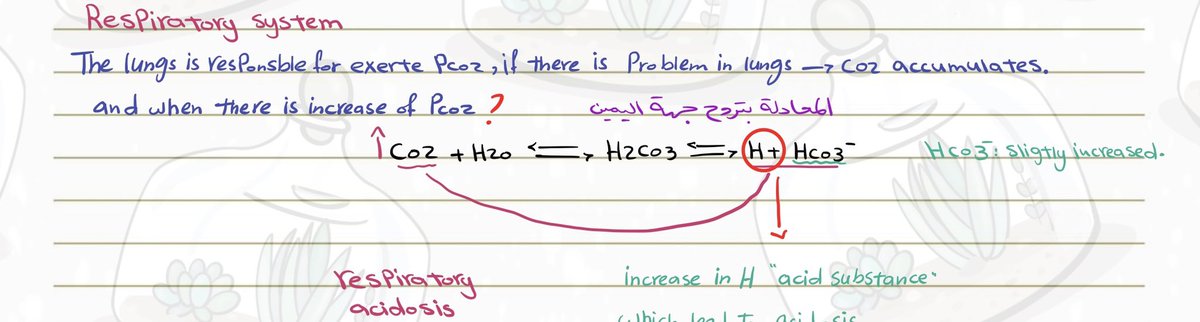 Respiratory system
The lungs is responsble for exerte Pco2, if there is Problem in lungs → Co2 accumulates.
and when there is increase of Pco2 ? المعادلة بتروح جهة اليمين
↑ Co2 + H2o ⇌ H2co3 ⇌ H+ Hco3⁻ Hco3⁻: sligtly increased.
respiratory increase in H "acid substance"
acidosis which lead to acidosis